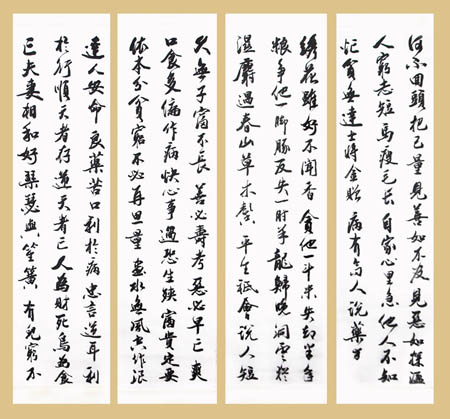 達人安命良藥苦口利於病忠言逆耳利
於行順天者存逆天者亡人為財死鳥為食
亡夫妻相和好琴瑟與笙簧有兒窮不
久無子富不長善必壽考惡必早亡爽
口食多偏作病快心事過恐生殃富貴定要
依本分貧窮不必再思量畫水無風空作浪
綉花雖好不聞香貪他一斗米失却半年
糧爭他一脚豚反失一肘羊龍歸晚洞雲猶
濕麝過春山草木馨平生秪會說人短
何不回頭把己量見善如不及見惡如探湯
人窮志短馬瘦毛長自家心里急他人不知
忙貧無達士將金贈病有高人說藥方